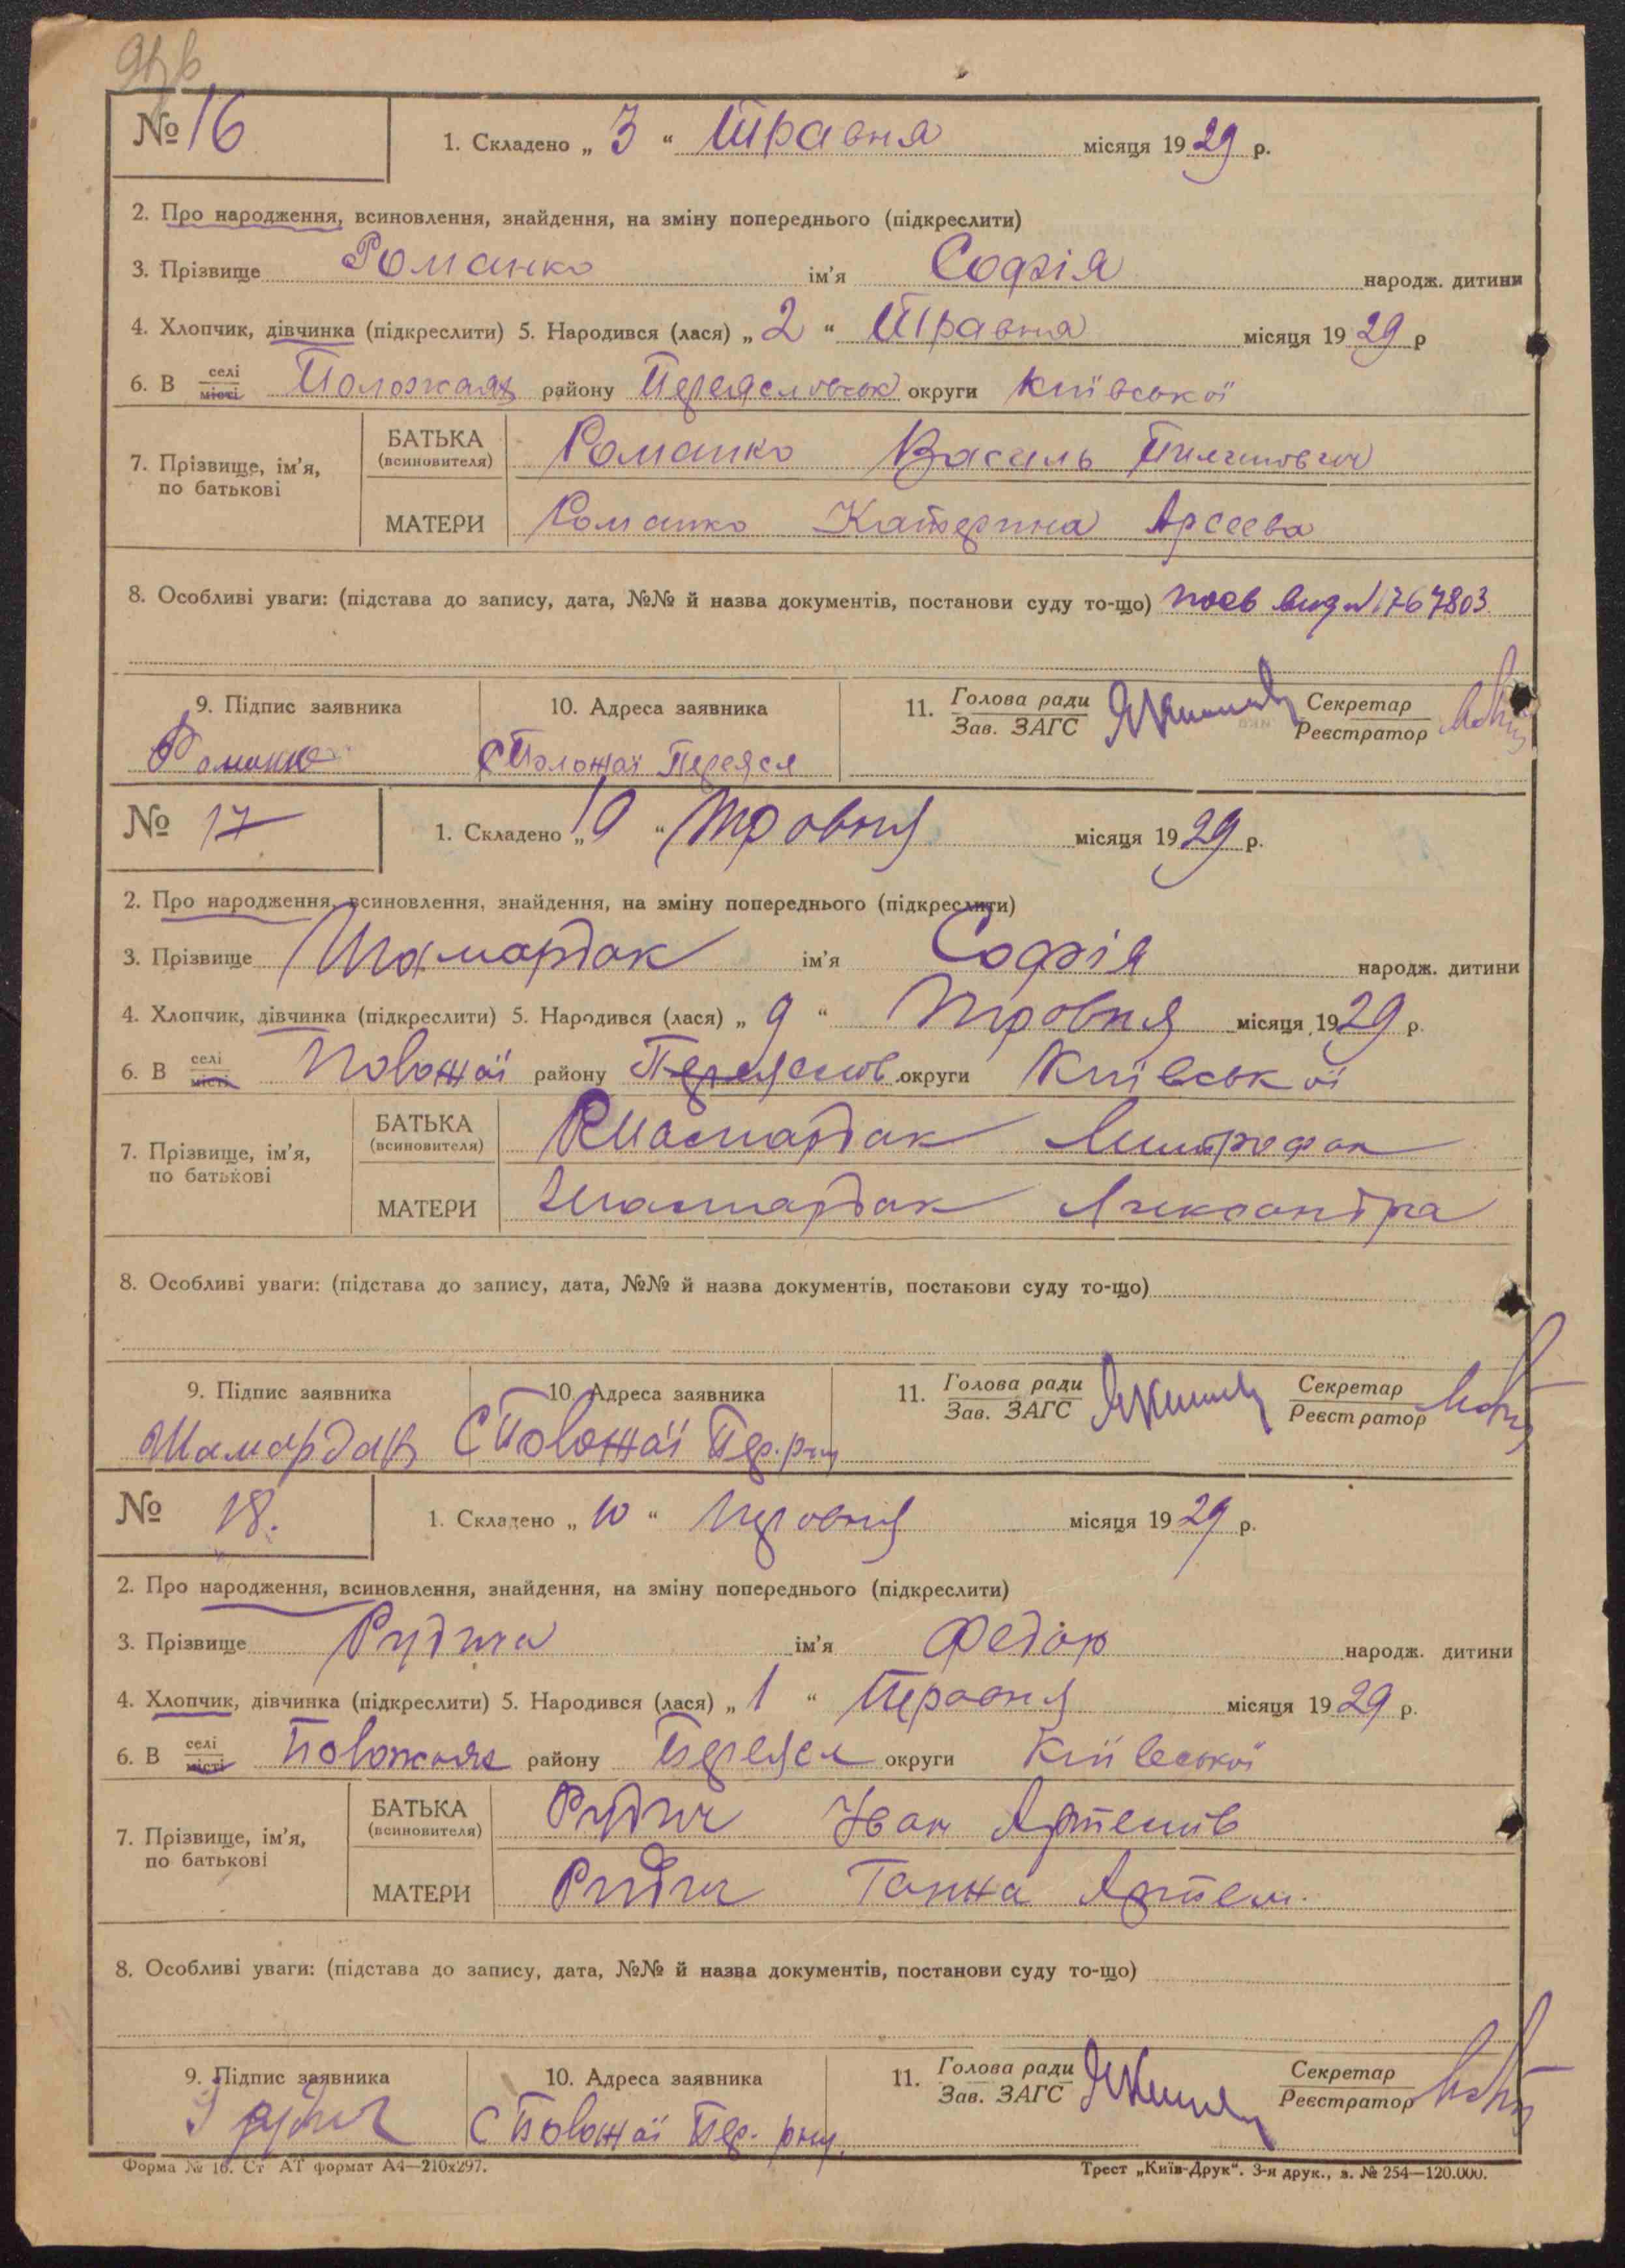 № 16 1. Складено „ 3 “ Травня місяця 19 29 р.
2. Про народження, всиновлення, знайдення, на зміну попереднього (підкреслити)
3. Прізвище Романко ім'я Софія народж. дитини
4. Хлопчик, дівчинка (підкреслити) 5. Народився (лася) „ 2 “ Травня місяця 19 29 р
6. В селі місті Положаях району Переясловськ округи Київської
7. Прізвище, ім'я, по батькові
БАТЬКА (всиновителя) Романко Василь
МАТЕРИ Романко Катерина Арсеева
8. Особливі уваги: (підстава до запису, дата, №№ й назва документів, постанови суду то-що) 767803
9. Підпис заявника 10. Адреса заявника 11. Голова ради Зав. ЗАГС Секретар Реєстратор
Романко С Положаї Переясл
№ 17 1. Складено „ 10 “ Травня місяця 19 29 р.
2. Про народження, всиновлення, знайдення, на зміну попереднього (підкреслити)
3. Прізвище Шамардак ім'я Софія народж. дитини
4. Хлопчик, дівчинка (підкреслити) 5. Народився (лася) „ 9 “ Травня місяця 19 29 р.
6. В селі місті Положаї району Переяслов округи Київської
7. Прізвище, ім'я, по батькові
БАТЬКА (всиновителя) Шамардак Митрофан
МАТЕРИ Шамардак Александра
8. Особливі уваги: (підстава до запису, дата, №№ й назва документів, постанови суду то-що)
9. Підпис заявника 10. Адреса заявника 11. Голова ради Зав. ЗАГС Секретар Реєстратор
Шамардак С Положаї Пер. р-ну
№ 18. 1. Складено „ 10 “ Травня місяця 19 29 р.
2. Про народження, всиновлення, знайдення, на зміну попереднього (підкреслити)
3. Прізвище Рудич ім'я Федор народж. дитини
4. Хлопчик, дівчинка (підкреслити) 5. Народився (лася) „ 1 “ Травня місяця 19 29 р.
6. В селі місті Положаях району Переясл округи Київської
7. Прізвище, ім'я, по батькові
БАТЬКА (всиновителя) Рудич Іван Артемів
МАТЕРИ Рудич Ганна Артем.
8. Особливі уваги: (підстава до запису, дата, №№ й назва документів, постанови суду то-що)
9. Підпис заявника 10. Адреса заявника 11. Голова ради Зав. ЗАГС Секретар Реєстратор
Рудич С Положаї Пер. р-ну.
Форма № 16. Ст АТ формат А4—210х297. Трест „Київ-Друк“. 3-я друк., з. № 254—120.000.